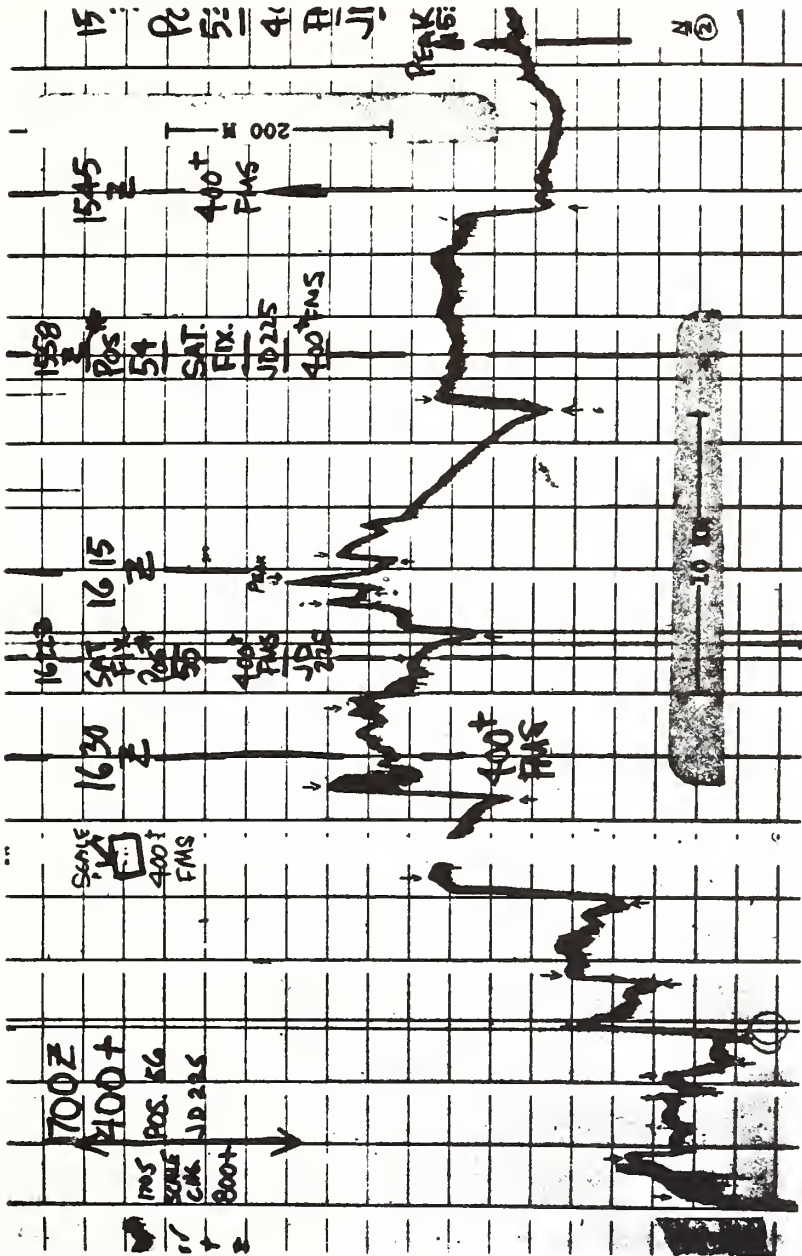 15
PO
5
4
JI
PEAK
15:
N
②
200 M
1545
Z
400+
FMS
1558
Z
POS*
54
SAT.
FIX.
JD225
400+FMS
1615
Z
PEAK
SAT
FIX
400+
FMS
JD
225
1630
Z
400+
FMS
10 KM
SCALE
400±
FMS
1700Z
400+
POS. 56
JD225
1705
SCALE
CHG.
800+